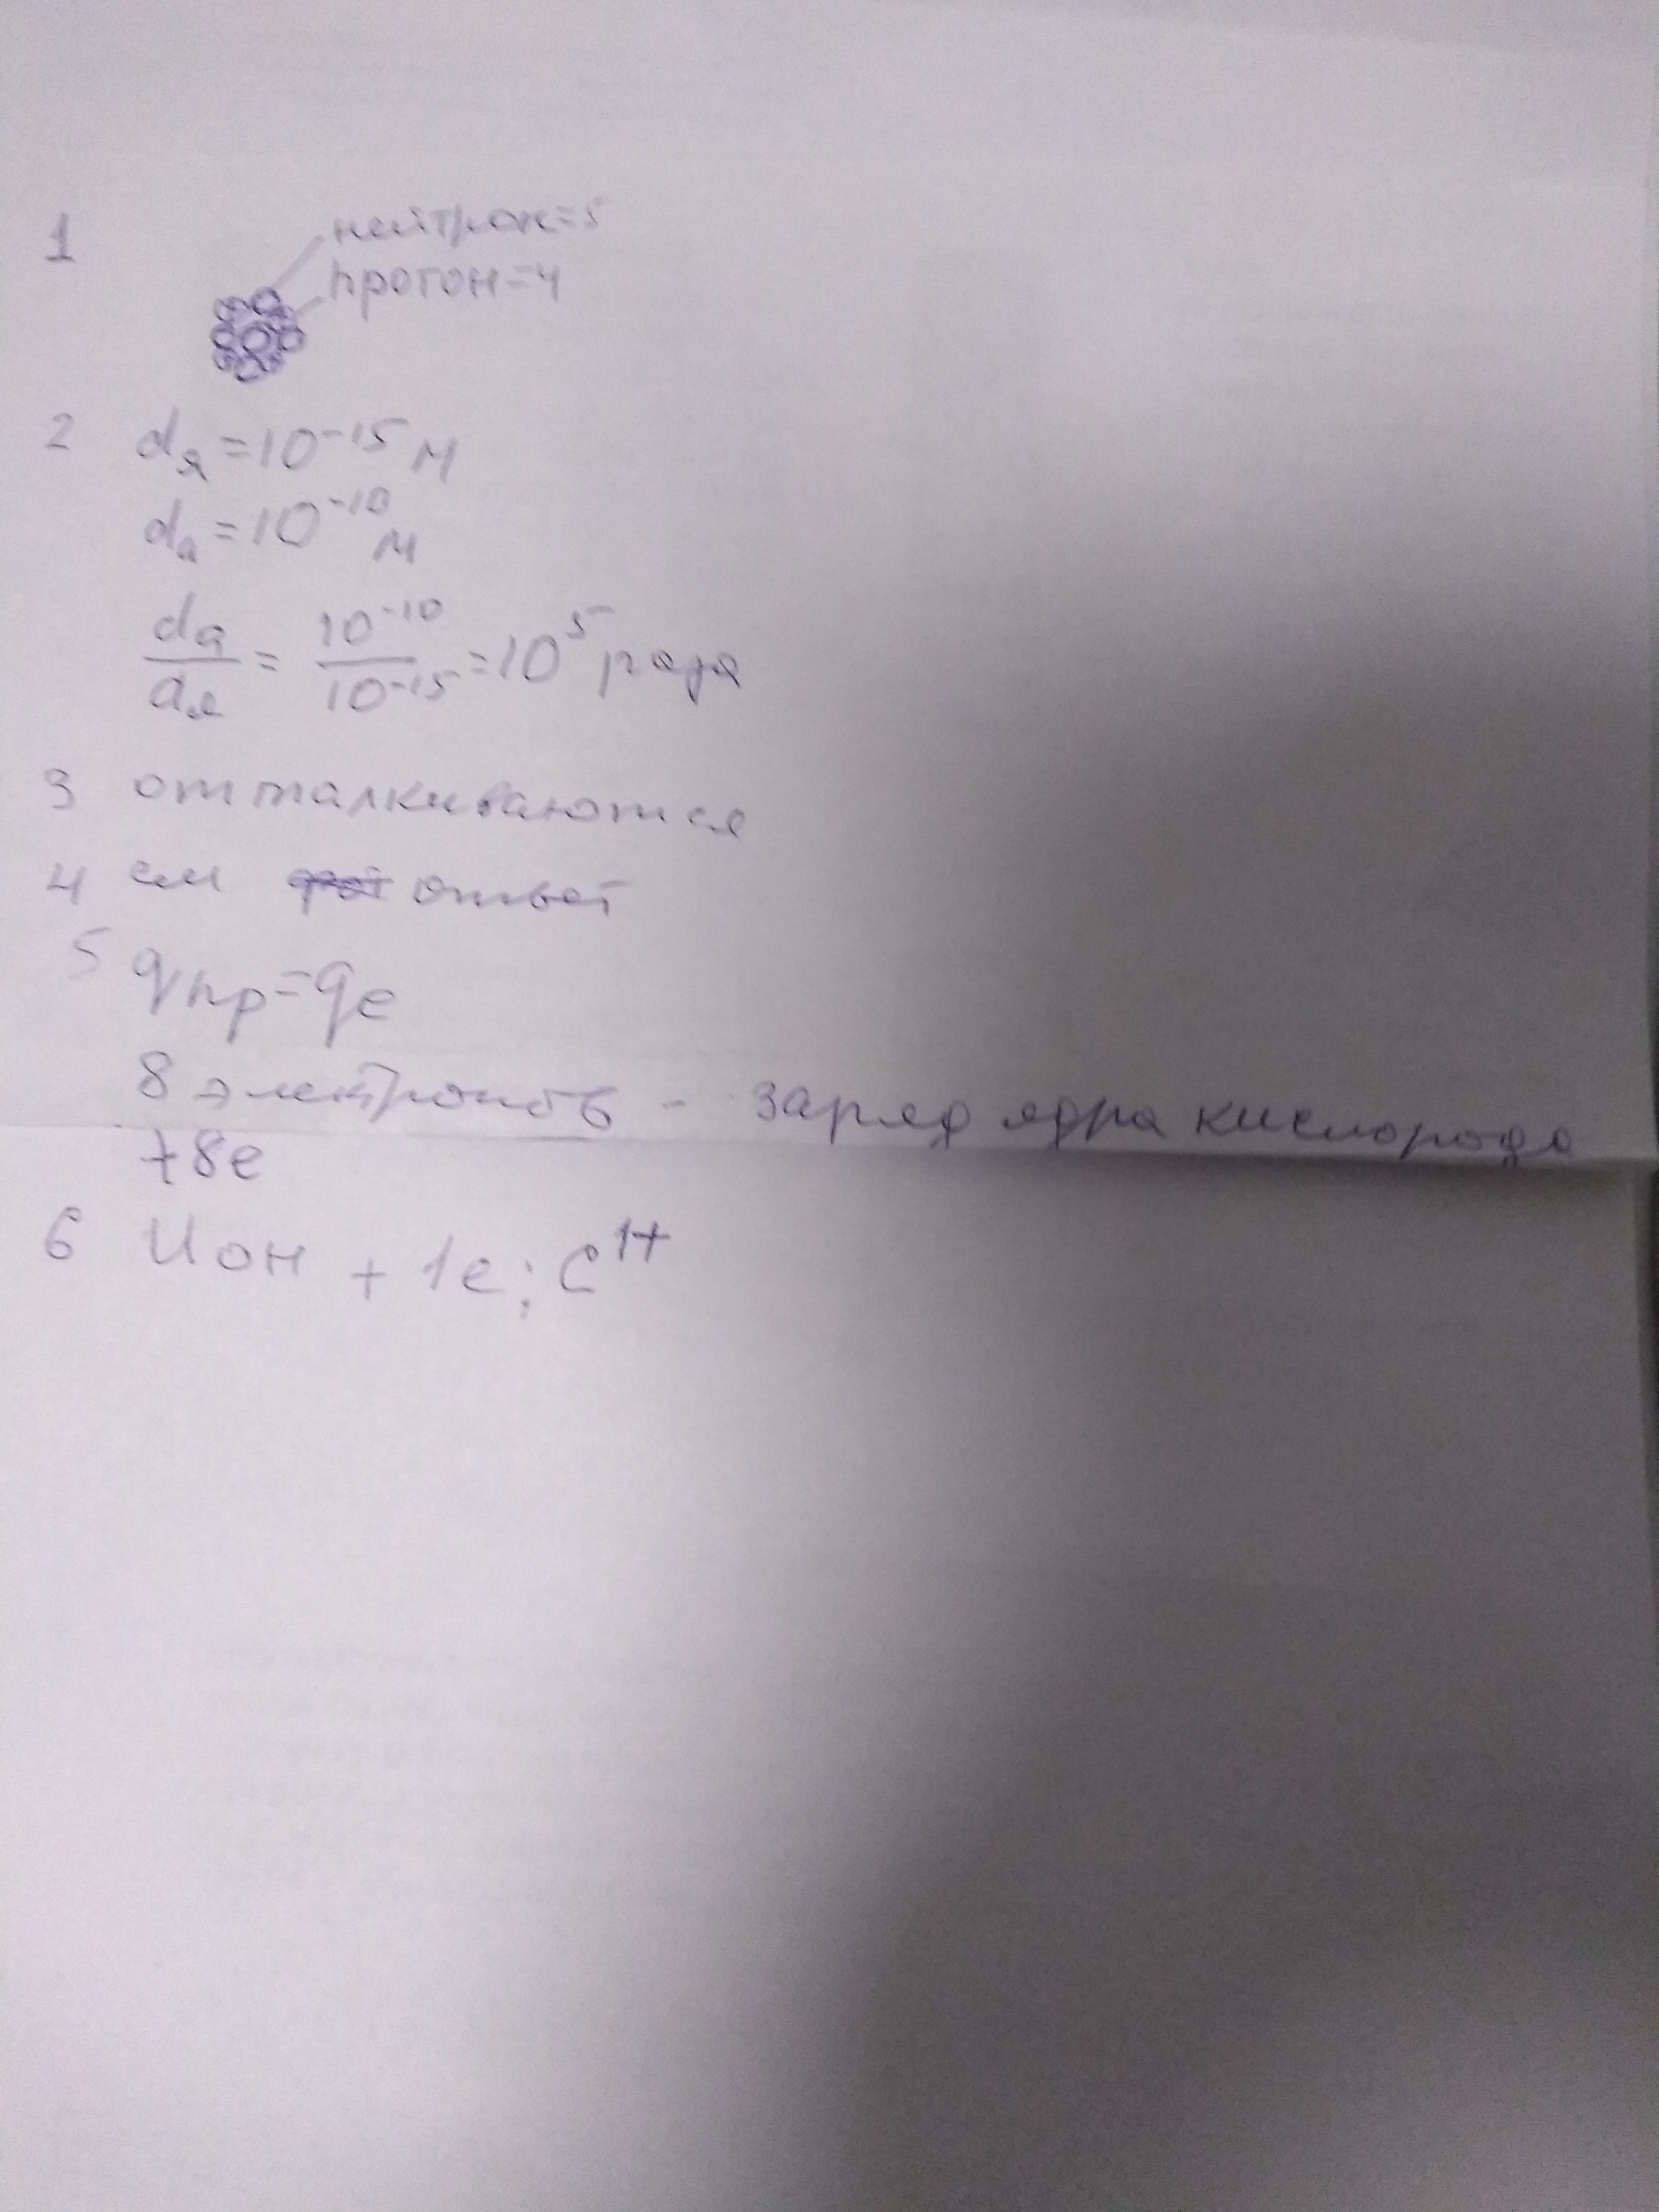 1 нейтрон=5
протон=4
2 dя=10⁻¹⁵ м
dа=10⁻¹⁰ м
dа/dя = 10⁻¹⁰/10⁻¹⁵ = 10⁵ раза
3 отталкиваются
4 см ответ
5 qпр=qe
8 электронов - заряд ядра кислорода
+8e
6 Ион +1e; C¹⁺